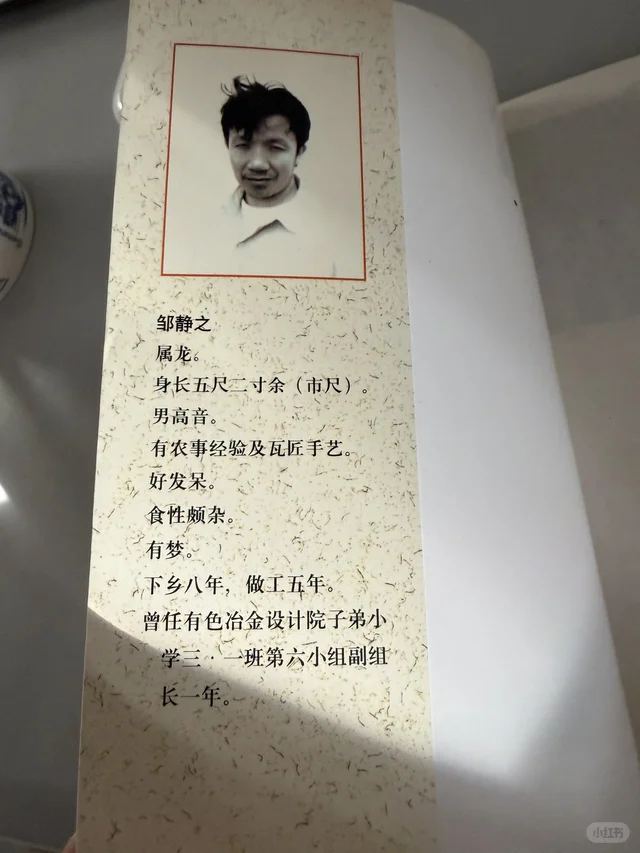 邹静之
属龙。
身长五尺二寸余（市尺）。
男高音。
有农事经验及瓦匠手艺。
好发呆。
食性颇杂。
有梦。
下乡八年，做工五年。
曾任有色冶金设计院子弟小
学三·一班第六小组副组
长一年。
小红书